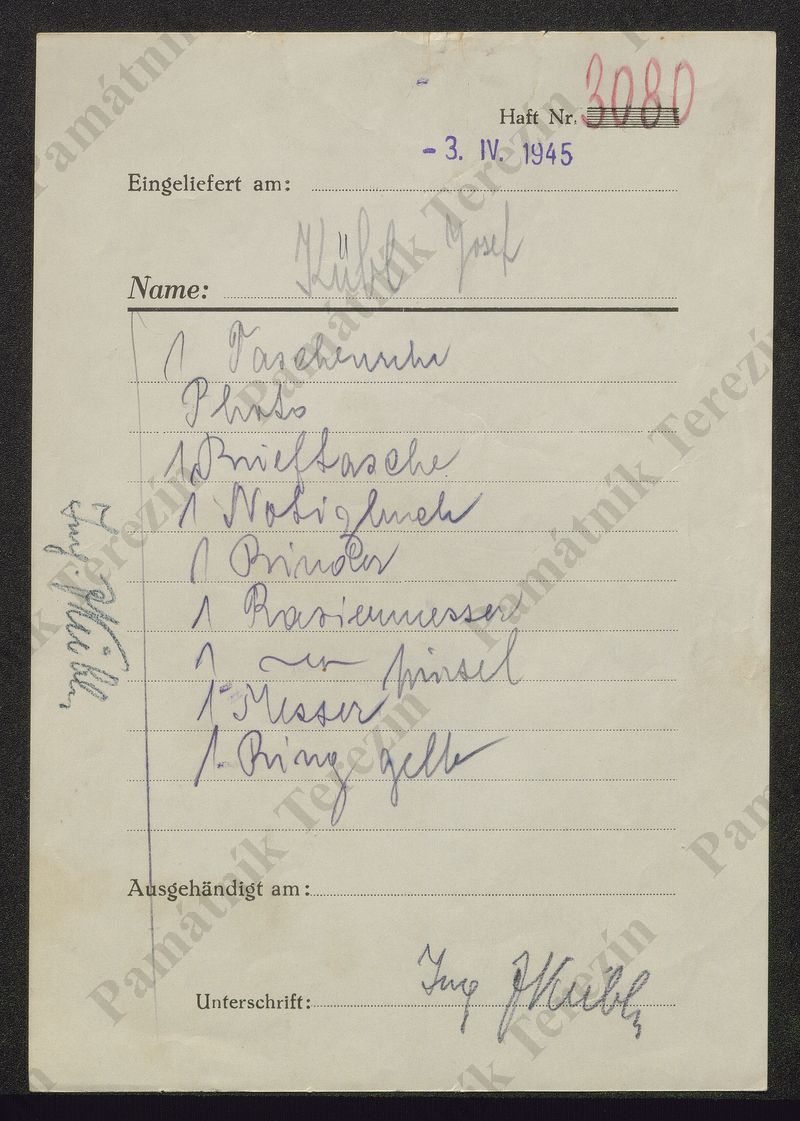 Haft Nr. 3080
- 3. IV. 1945
Eingeliefert am:
Name: Kübl Josef
1 Taschenuhr
Photo
1 Brieftasche
1 Notizbuch
1 Binder
1 Rasiermesser
1 —"— pinsel
1 Messer
1 Ring gelb
Ausgehändigt am:
Unterschrift: Ing JKübl
Ing. JKübl
Památník Terezín